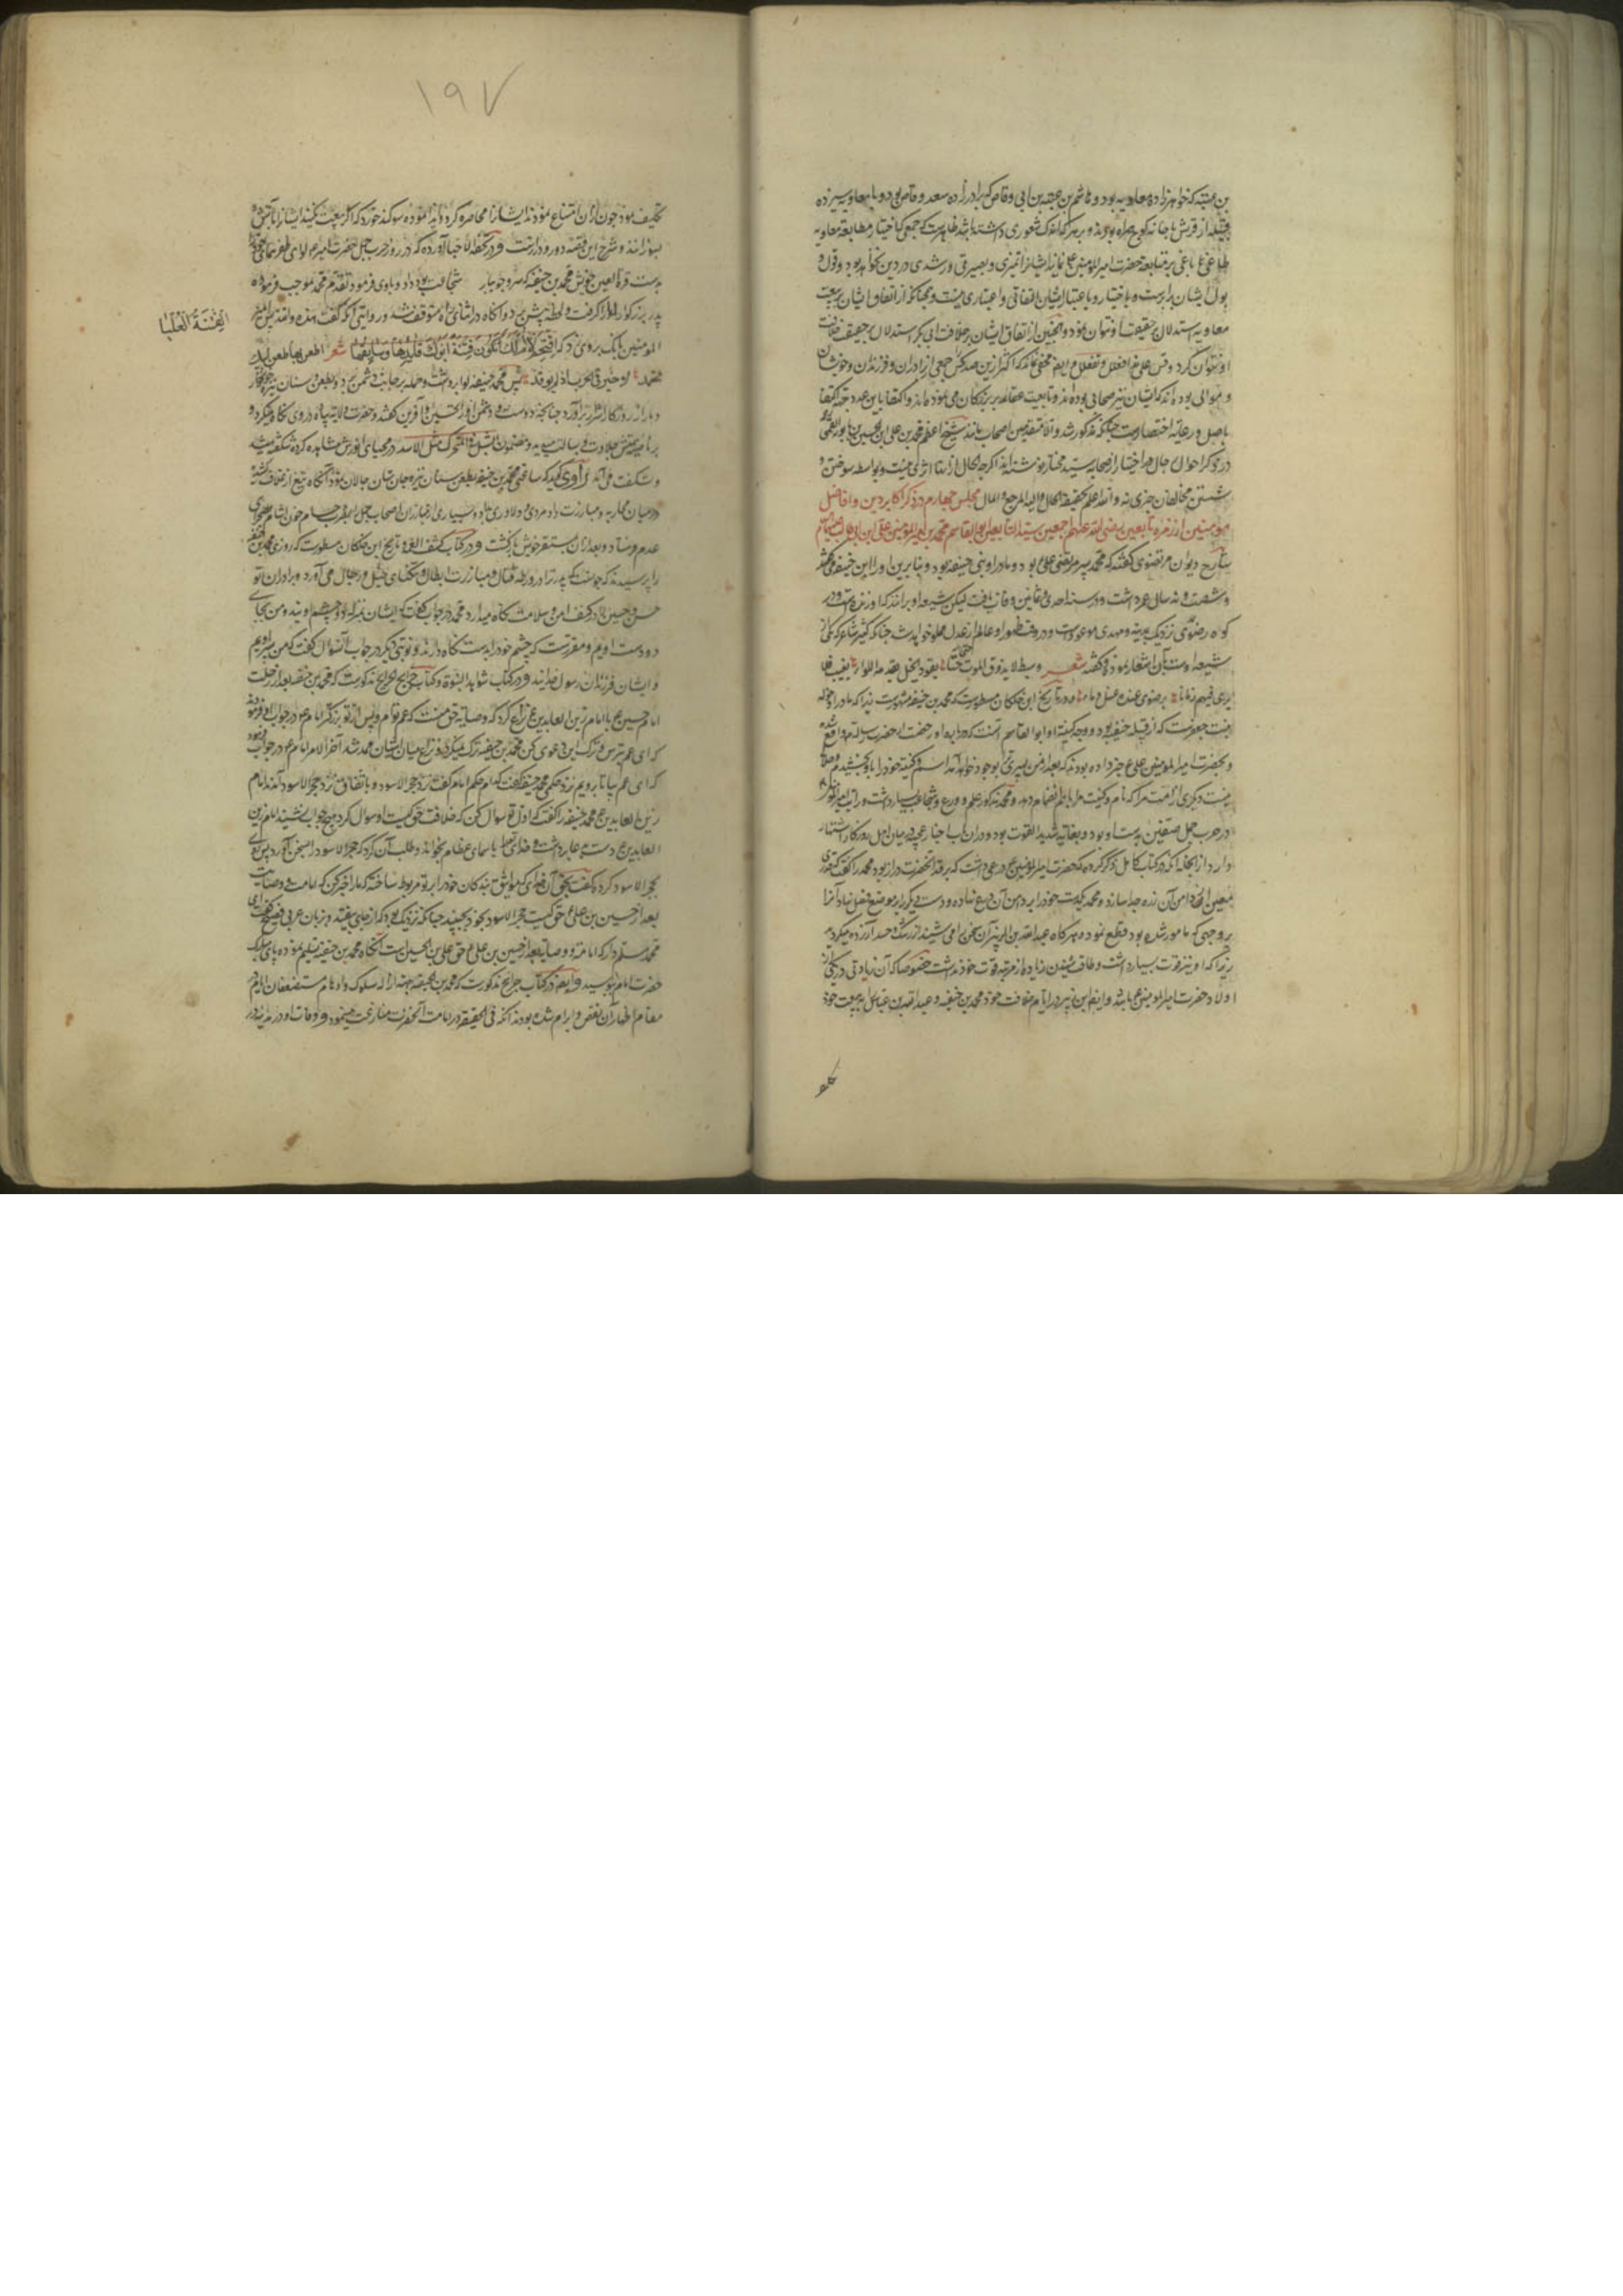 بن عتبه که خواهرزاده معاویه بود و هاشم بن عتبه بن ابی وقاص که برادرزاده سعد وقاص بود و با معاویه سیزده
قبیله از قریش با خانه کوچ همراه بودند و بر هر که اندک شعوری داشته باشد ظاهرست که جمعی که اختیار مطابعة معاویه
طاغی باغی بر متابعة حضرت امیر المومنین ع نمایند ایشانرا تمیزی و بصیرتی و رشدی در دین نخواهد بود و قول و
بول ایشان برابرست و باختیار و با عتبار ایشان التفاتی و اعتباری نیست و همچنانکه از اتفاق ایشان بر بیعت
معاویه استدلال بر حقیقت او نتوان نمود و همچنین از اتفاق ایشان بر خلافت ابی بکر استدلال بر حقیقت خلافت
او نتوان کرد و مخفی نماند که اکثر ازین صد کس جمعی از برادران و فرزندان و خویشان
و موالی بوده اند که ایشان نیز صحابی بوده اند و تابعیت عقاید بزرکان می نموده اند و اکتفا باین عدد جهة اکتفا
باصل و رعایة اختصارست چنانکه مذکور شد و الا متقدمین اصحاب مانند شیخ اعظم محمد بن علی بن الحسین بن بابویه القمی
در ذکر احوال رجال اخیار از صحابه سید مختار نوشته اند اکرچه الحال از انها اثری نیست و بواسطه سوختن و
شستن مخالفان چیزی نماند و الله اعلم بحقیقة الحال و الیه المرجع و المال مجلس چهارم در ذکر اکابر دین و افاضل
مؤمنین از زمره تابعین رضی الله عنهم اجمعین سید التابعین ابو القاسم محمد بن امیر المومنین علی ابن ابی طالب علیهما السلام
شارح دیوان مرتضوی کفته که محمد پسر مرتضی علی بود و مادر او بنی حنیفه بود و بنابرین او را ابن حنیفه می کفتند
و شصت و نه سال عمر داشت و در سنه احدی و ثمانین وفات یافت لیکن شیعه او برانند که او زنده است و در
کوه رضوی نزدیک مدینه و مهدی موعود اوست و در وقت ظهور او عالم از عدل مملو خواهد شد چنانکه کثیر شاعر که یکی از
شیعه اوست بآن اشعار نموده و کفته شعر وسبط لا یذوق الموت حتی یقود الخیل یقدمه اللواء یغیب فلا
یری فیهم زمانا برضوی عنده عسل و ماء و در تاریخ ابن خلکان مسطورست که محمد بن حنیفه مشهورست زیرا که مادر او خوله
بنت جعفرست که از قبیله حنیفه بود و وجه کنیة او ابو القاسم آنست که در رخصت از حضرت رسالت واقع شده
و بحضرت امیر المومنین علی ع خبر داده بودند که بعد از من پسری ترا بوجود خواهد آمد اسم و کنیة خود را باو بخشیدم و حلال
نیست دیکری از امت مرا که نام و کنیت مرا باهم انضمام دهد و محمد مذکور علم و ورع و شجاعت بسیار داشت و رایت امیر المومنین
در حرب جمل و صفین بدست او بود و بغایة شدید القوت بود و دران باب اخبار عجیبه در میان اهل روزکار اشتهار
دارد از انجمله آنکه در کتاب کامل ذکر کرده که حضرت امیر المومنین ع درعی داشت که بر قد انحضرت دراز بود محمد را کفت که قدری
معین از دامن آن زره جدا سازد و محمد یکدست خود را بر دامن آن درع نهاده و دست دیکر را بر موضع فصل نهاد آنرا
بروجهی که مامور شده بود قطع نمود و هرکاه عبد الله بن الزبیر آن سخن را می شنید از رشک و حسد آزرده میکردید
زیرا که او نیز قوت بسیار داشت و طاقت شنیدن زیاده از مرتبه قوت خود نداشت خصوصا که آن زیادتی در یکی از
اولاد حضرت امیر المومنین ع باشد و ایضا ابن زبیر در ایام خلافت خود محمد بن حنیفه و عبد الله بن عباس را به بیعت خود
تکلیف
۱۹۷
تکلیف نمود چون ازان امتناع نمودند ایشانرا محاصره کرد و ایذا نموده سوکند خورد که اکر بیعت نکنید ایشانرا بآتش
بسوزانند و شرح این قصه دور و درازست و در تحفة الاحبا آورده که در روز حرب جمل حضرت امیر ع لوای ظفر نمای خود را
بدست قرة العین خویش محمد بن حنیفه که سرو جویبار شجاعت بود داد و باوی فرمود تقدم محمد بموجب فرموده
پدر بزرکوار لوا را کرفت و لحظه پیش برد و آنکاه در اثنای راه متوقف شد و روایتی آنکه کفت هذه والله امیر
المومنین بانک بروی زد که اقتحم لا ام لک أتکون فتنة ابوک قایدها وسایقها شعر اطعن بها طعن ابیک
الفتنة العلیا
تحمد لا خیر فی الحرب اذا لم توقد پس محمد حنیفه لوا برداشت و حمله بر جانب دشمن برد و بطعن سنان نیزه خونخوار
دمار از روزکار اشرار برآورد چنانچه دوست و دشمن او را تحسین و آفرین کفتند و حضرت ولایت پناه در وی نکاه میکرد و
و شکفت می آمد راوی کوید که ساعتی محمد بن حنیفه بطعن سنان نیزه جان ستان جولان نمود آنکاه تیغ از غلاف کشیده
در میدان محاربه و مبارزت داد مردی و دلاوری داد و بسیاری از مبارزان اصحاب جمل را بضرب حسام خون آشام بصحرای
عدم فرستاد و بعد ازان بمستقر خویش بازکشت و در کتاب کشف الغمه و تاریخ ابن خلکان مسطورست که روزی محمد بن حنفیه
را پرسیدند که چونست که پدر ترا در ورطه قتال و مبارزت ابطال و تنکنای خیل و رجال می آورد و برادران تو
حسن و حسین را در کنف امن و سلامت نکاه میدارد محمد در جواب کفت که ایشان بمنزله دو چشم اویند و من بجای
دو دست اویم و مقررست که چشم خود را بدست نکاه دارند و نوبتی دیکر در جواب آن سوال کفت که من پسر اویم
و ایشان فرزندان رسول خدایند و در کتاب شواهد النبوة و کتاب خرایج جرایح مذکورست که محمد بن حنفیه بعد از رحلت
امام حسین ع با امام زین العابدین ع نزاع کرد که وصایة حق منست که عم توام و پس از تو بزرکترم امام ع در جواب او فرمود
که ای عم بترس و ترک این دعوی کن محمد بن حنیفه ترک نمیکرد و نزاع میان ایشان ممتد شد آخر الامر امام ع در جواب فرمود
که ای عم بیا تا برویم نزد حکمی محمد حنیفه کفت که کدام حکم امام کفت نزد حجر الاسود و باتفاق نزد حجر الاسود آمدند امام
زین العابدین ع محمد حنیفه را کفت که اول تو سوال کن که خلافت حق کیست او سوال کرد هیچ جواب نشنید امام زین
العابدین ع دست بدعا برداشت و خدای تعالی را باسمای عظام بخواند و طلب آن کرد که حجر الاسود را بسخن آورد پس روی
بحجر الاسود کرده کفت بحق آن خدای که مواثیق بندکان خود را بر تو مربوط ساخته که ما را خبر کن که امامت و وصایت
بعد از حسین بن علی ع حق کیست حجر الاسود بخود بجنبید چنانکه نزدیک بود که از جای بیفتد و بزبان عربی فصیح کفت که ای
محمد مسلم دار که امامة و وصایة بعد از حسین بن علی ع حق علی بن الحسین است آنکاه محمد بن حنیفه تسلیم نموده پای مبارک
حضرت امام ببوسید و ایضا در کتاب جرایح مذکورست که محمد بن حنیفه جهة ازاله شکوک و اوهام مستضعفان انام در
مقام اظهار آن نقض و ابرام شده بود نه آنکه فی الحقیقه در امامت آنحضرت منازعت مینمود و وفات او در مدینه در